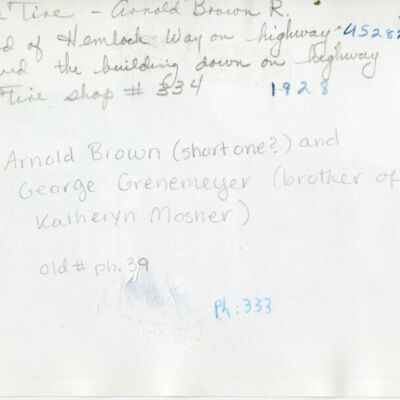 Tire - Arnold Brown R.
of Hemlock Way on highway US282
the building down on highway
Tire shop # 334 1928
Arnold Brown (short one?) and
George Grenemeyer (brother of
Katheryn Mosher)
old # ph. 39
Ph: 333